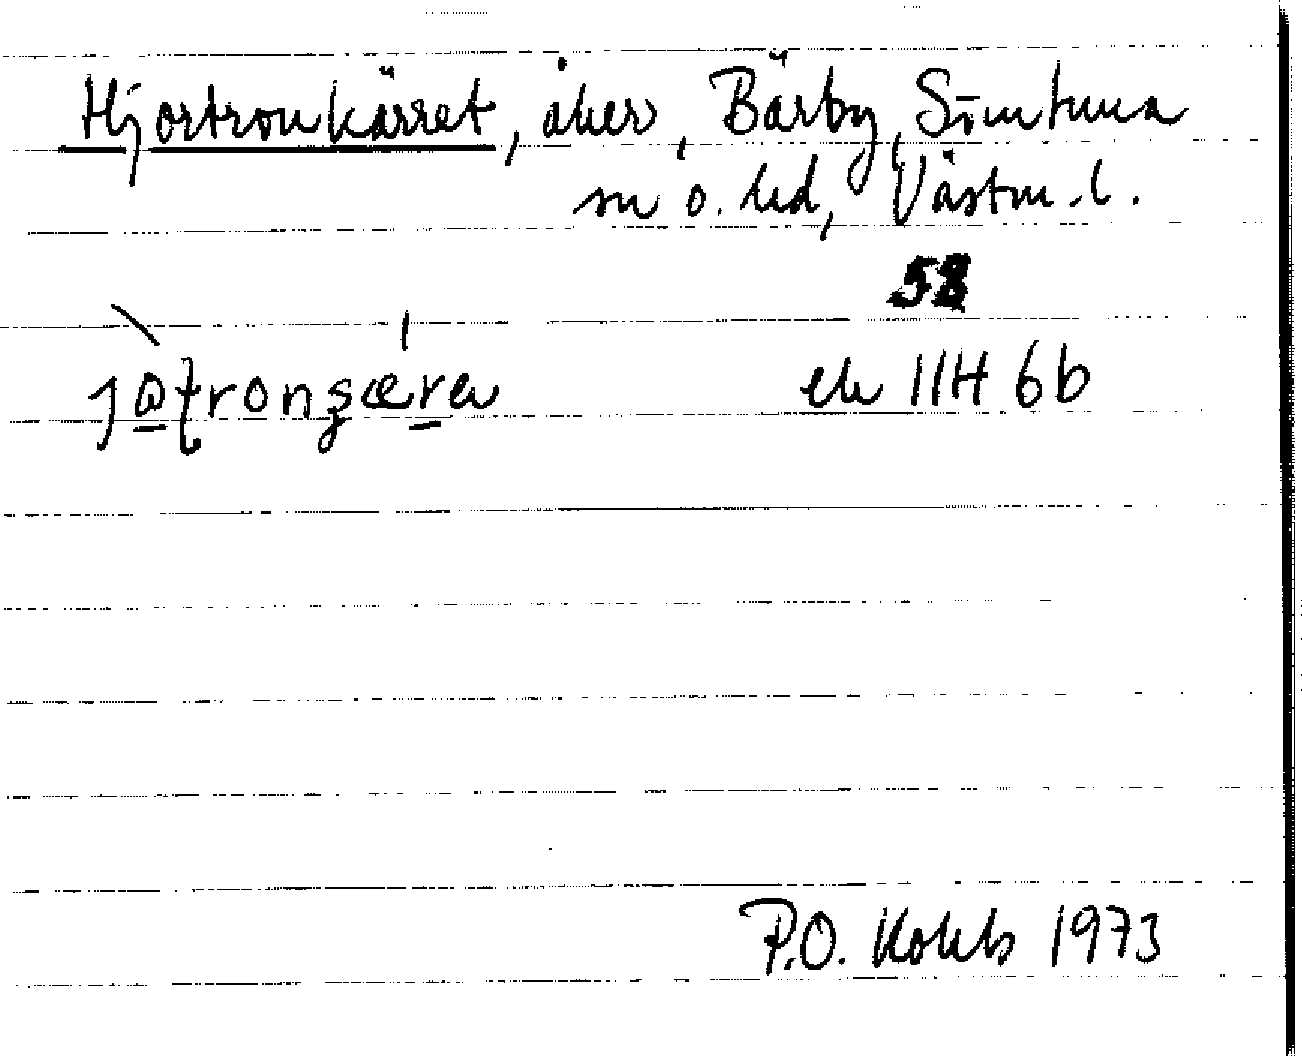 Hjortronkärret, åker, Bärby, Simtuna
sn o. hd, Västm.l.
58
jòtrongǽre ek 11H 6b
P.O. 1973